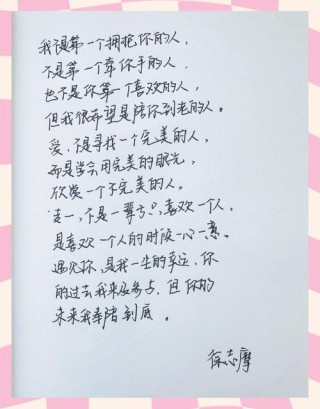 我不是第一个拥抱你的人,
不是第一个牵你手的人,
也不是你第一个喜欢的人,
但我很希望是陪你到老的人。
爱,不是寻找一个完美的人,
而是学会用完美的眼光,
欣赏一个不完美的人。
专一,不是一辈子只喜欢一个人,
是喜欢一个人的时候一心一意。
遇见你,是我一生的幸运,你
的过去我来不及参与,但你的
未来我奉陪到底。
徐志摩